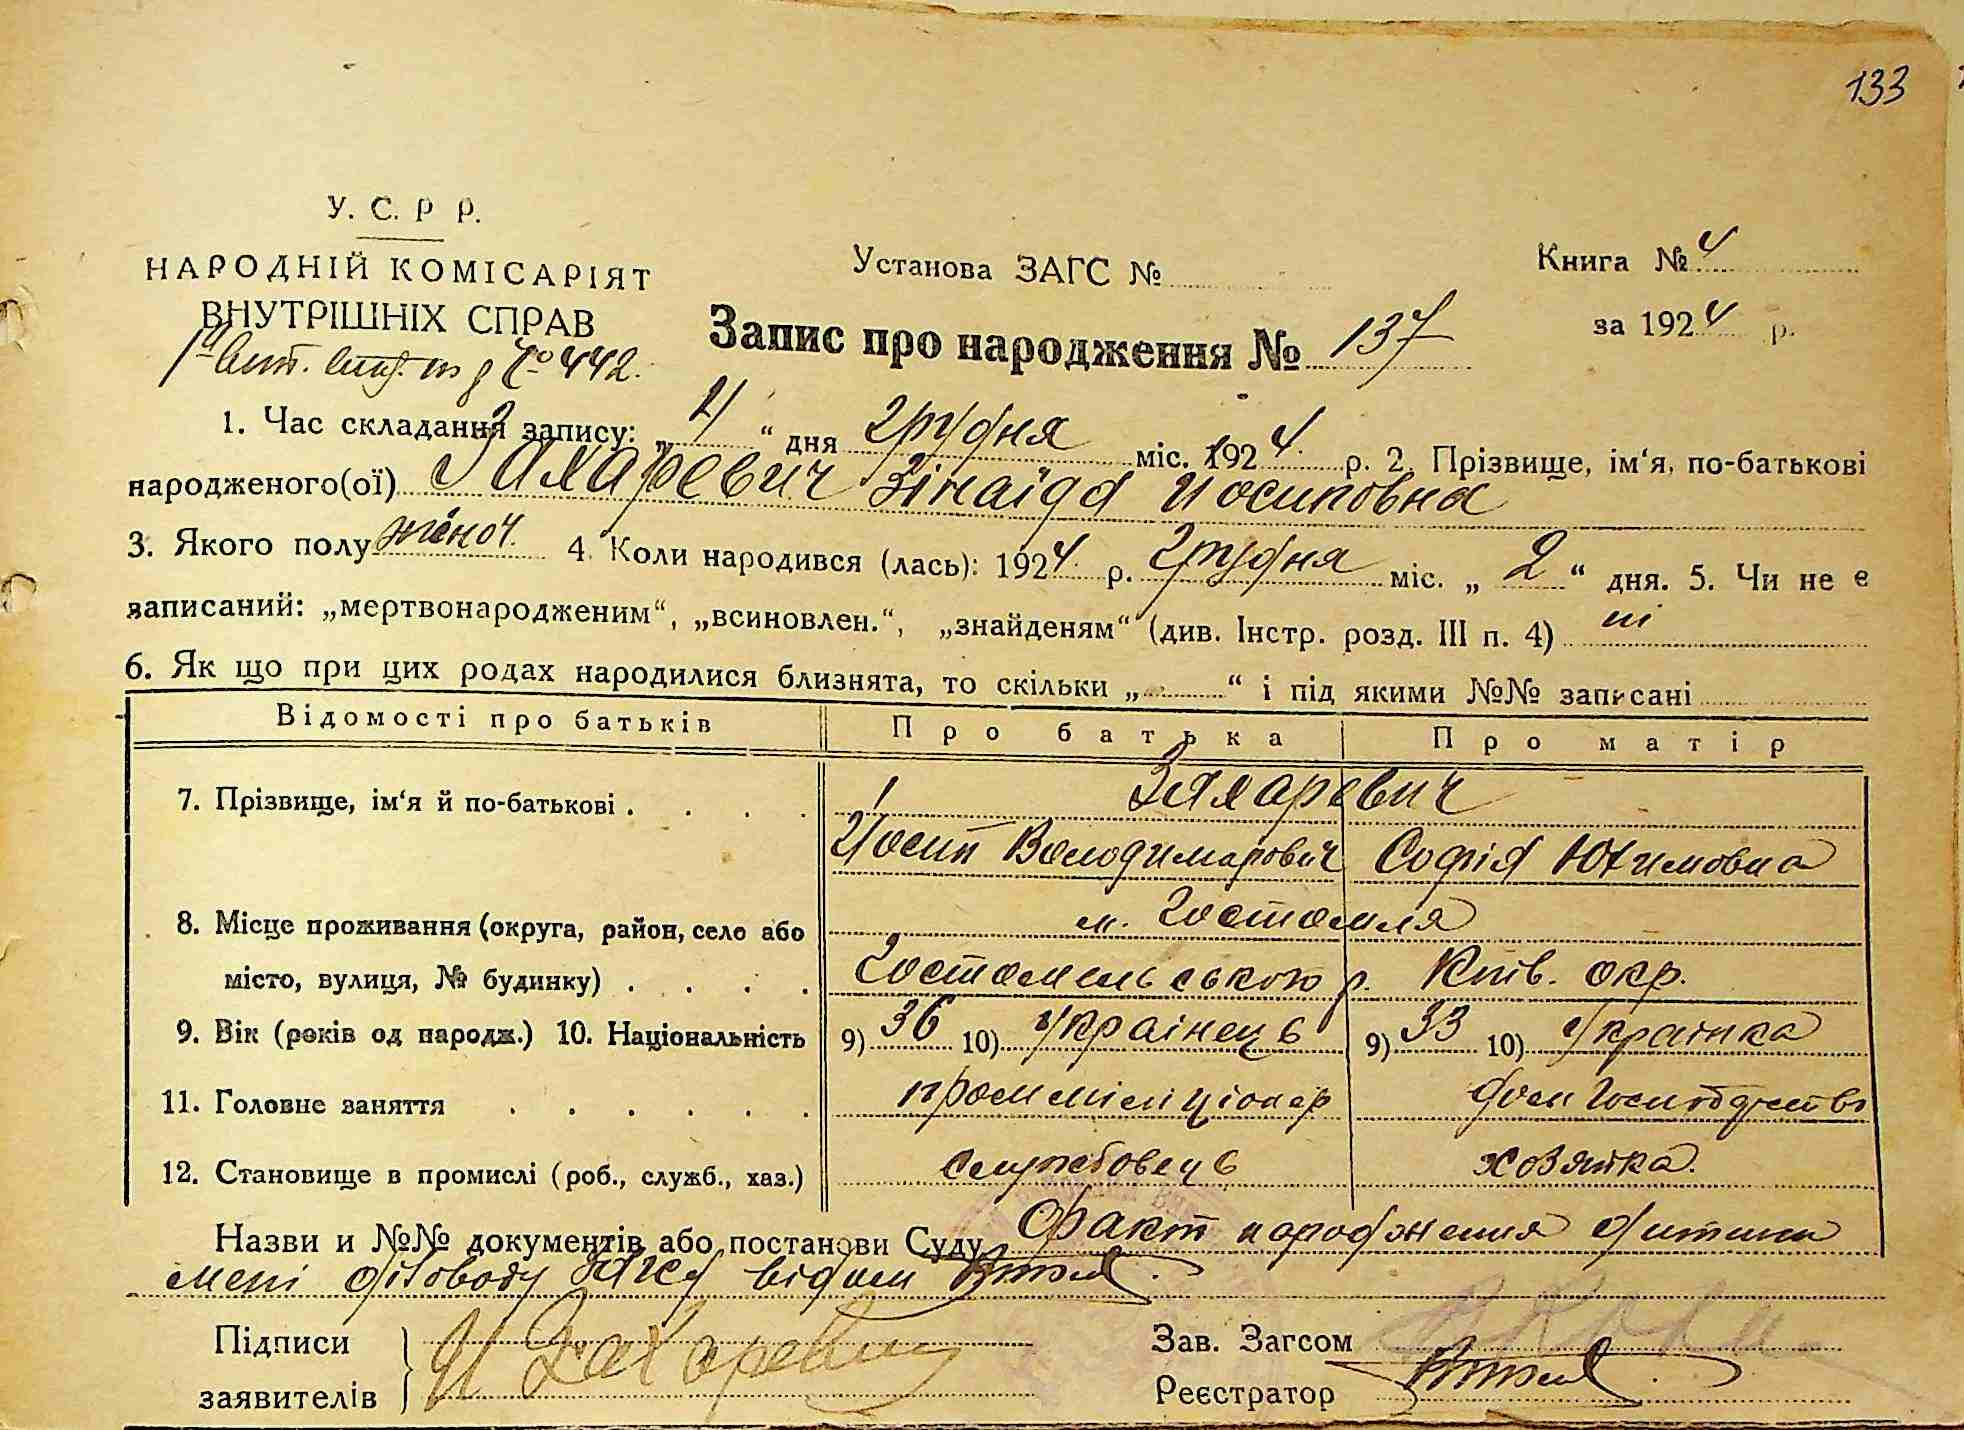 133
У. С. Р Р.
НАРОДНІЙ КОМІСАРІЯТ
ВНУТРІШНІХ СПРАВ
Установа ЗАГС №
Книга № 4
за 1924 р.
Запис про народження № 137
№ 442.
1. Час складання запису: „4“ дня Грудня міс. 1924 р. 2. Прізвище, ім‘я, по-батькові
народженого(ої) Захаревич Зінаїда Йосиповна
3. Якого полу жіноч. 4. Коли народився (лась): 1924 р. Грудня міс. „2“ дня. 5. Чи не є
записаний: „мертвонародженим“, „всиновлен.“, „знайденям“ (див. Інстр. розд. III п. 4) ні
6. Як що при цих родах народилися близнята, то скільки „ “ і під якими №№ записані
Відомості про батьків Про батька Про матір
7. Прізвище, ім‘я й по-батькові . . . . Захаревич
Йосип Володимирович Софія Юхимовна
8. Місце проживання (округа, район, село або м. Гостомля
місто, вулиця, № будинку) . . . . Гостомельського р. Київ. окр.
9. Вік (років од народж.) 10. Національність 9) 36 10) Українець 9) 33 10) Українка
11. Головне заняття . . . . . . пром міліціонер дом господрство
12. Становище в промислі (роб., служб., хаз.) службовець хозяйка.
Назви и №№ документів або постанови Суду Факт народження дитини
мені діловоду Загса відом
Підписи
заявителів
Й Захаревич
Зав. Загсом
Реєстратор